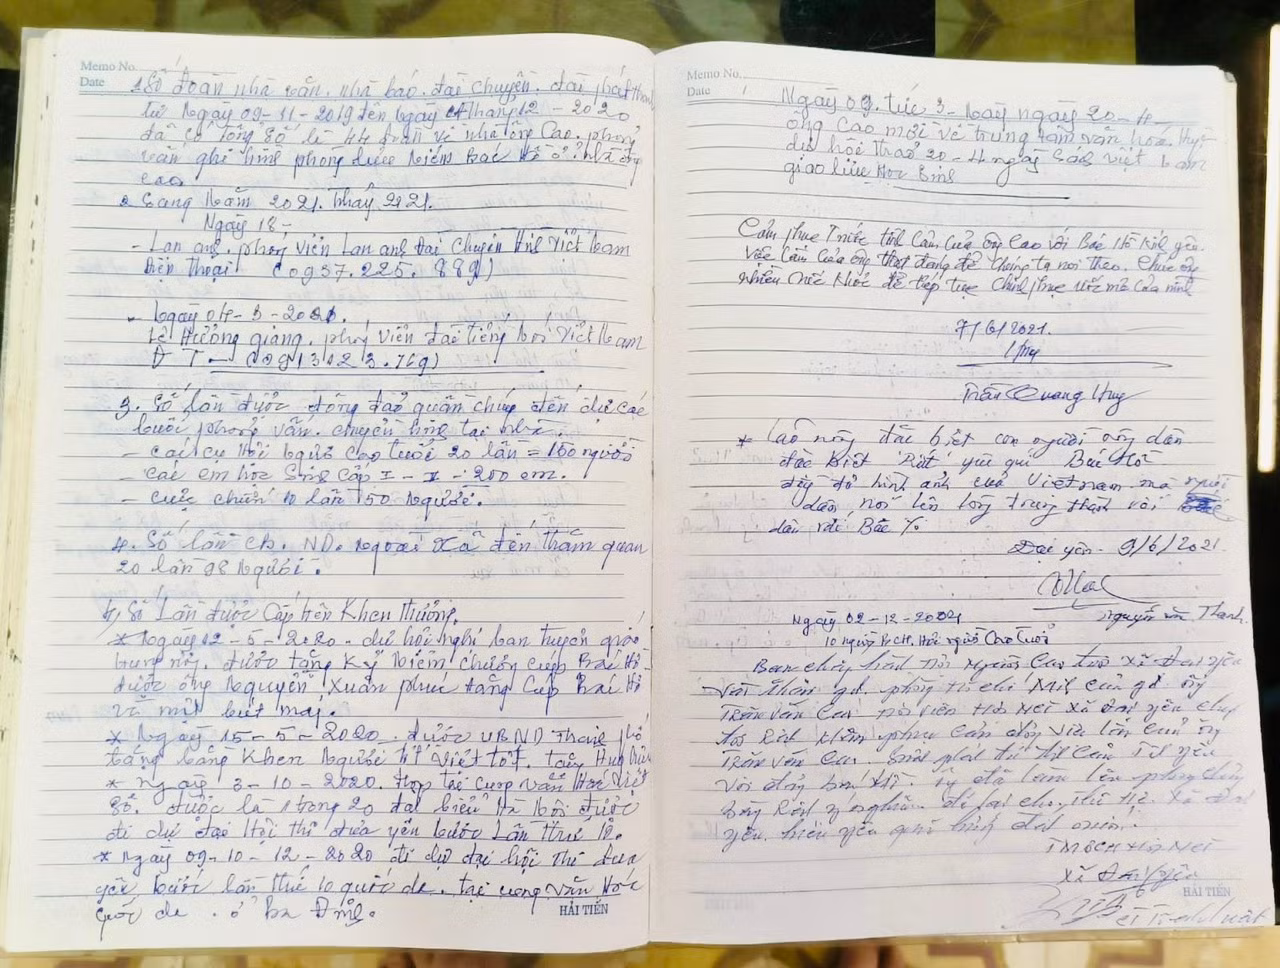 Memo No.
Date
1 Số đoàn nhà văn. nhà báo. đài chuyền. đài phát thanh
từ Ngày 09-11-2019 đến ngày 04 tháng 12-2020
đã có tổng số là 44 đoàn về nhà ông Cao. phỏng
vấn ghi hình phòng lưu niệm Bác Hồ ở nhà ông
cao
2 Sang Năm 2021.
Ngày 18-
- Lan anh. phóng viên Lan anh Đài Chuyền Hình Việt Nam
Điện thoại (0957.225.889)
- Ngày 04-3-2021.
Lê Hương giang. phóng viên đài tiếng nói Việt Nam
ĐT- (0913423.769)
3. Số lần được đông đảo quần chúng đến dự các
buổi phỏng vấn. chuyền hình tại nhà.
- các cụ Hội Người Cao tuổi 20 lần = 150 người
các em học Sinh Cấp I - II - 200 em.
- cựu chiến 10 lần 150 Người.
4. Số lần cb. ND. Ngoài Xã đến thăm quan
20 lần 98 Người.
5, Số Lần được Cấp trên Khen thưởng.
* Ngày 12-5-2020. dự hội nghị ban tuyên giáo
trung ương. được tặng Kỷ niệm chương cúp Bác Hồ
được ông Nguyễn Xuân phúc tặng Cúp Bác Hồ
và một bút máy.
* Ngày 15-5-2020. được UBND Thành phố
tặng bằng Khen Người tốt Việt tốt.
* Ngày 3-10-2020. Họp tại Cung văn Hoá Việt
Xô. được là 1 trong 20 đại biểu Hà Nội được
đi dự đại Hội thi đua yêu nước Lần thứ 10.
* Ngày 09-10-12-2020 đi dự đại hội thi đua
yêu nước lần thứ 10 quốc da. tại cung văn Hoá
quốc da. ở ba Đình.
HẢI TIẾN
Memo No.
Date
Ngày 09. tức 3- ngày 20-4-
ông cao mới về trung tâm văn hoá Huyện
dự hội thảo 20-4 ngày Sách việt nam
giao lưu Học Sinh
Cảm phục Trước tình Cảm Của ông Cao với Bác Hồ Kính yêu.
Việc làm Của ông thật đáng để Chúng ta noi theo. Chúc ông
nhiều sức khoẻ để tiếp tục Chinh phục ước mơ Của mình
7/6/2021.
Huy
Trần Quang Huy
* Lão nông đặc biệt con người ông dân
đặc biệt Rất yêu quí Bác Hồ
đầy đủ hình ảnh của Việt nam mà người
dân nói lên lòng trung thành với
dân với Bác
Đại yên. 9/6/2021.
Nguyễn văn Thanh.
Ngày 02-12-2021
10 người BCH. Hội người Cao tuổi
Ban chấp hành hội Người Cao tuổi xã Đại yên
với thăm gđ. phòng Hồ Chí Minh của gđ ông
Trần văn Cao. hội viên Hội NCT xã Đại yên chúng
tôi rất khâm phục Cảm động việc làm Của ông
Trần văn Cao.
với đồng bào ông đã làm lên phòng
trưng ý nghĩa. để lại cho thế hệ. Xã Đại
yên.
TM BCH Hội NCT
Xã Đại Yên
HẢI TIẾN